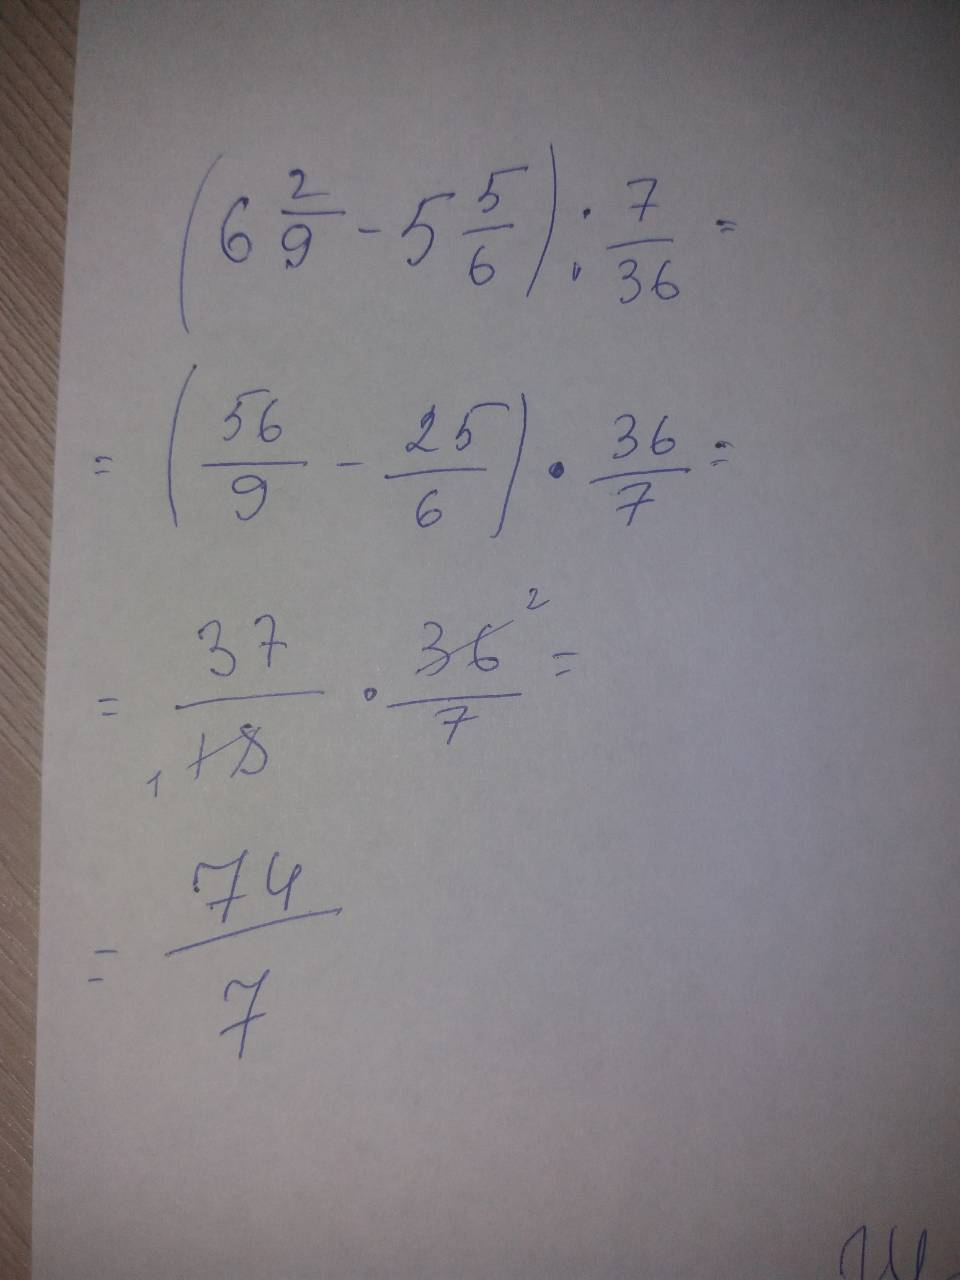 (6 2/9 - 5 5/6) : 7/36 =
= (56/9 - 25/6) · 36/7 =
= 37/18 · 36/7 =
1 2
= 74/7